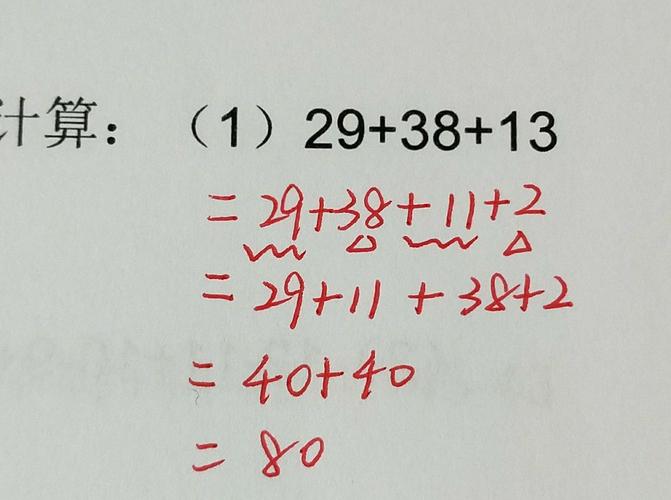 计算：（1）29+38+13
=29+38+11+2
=29+11+38+2
=40+40
=80